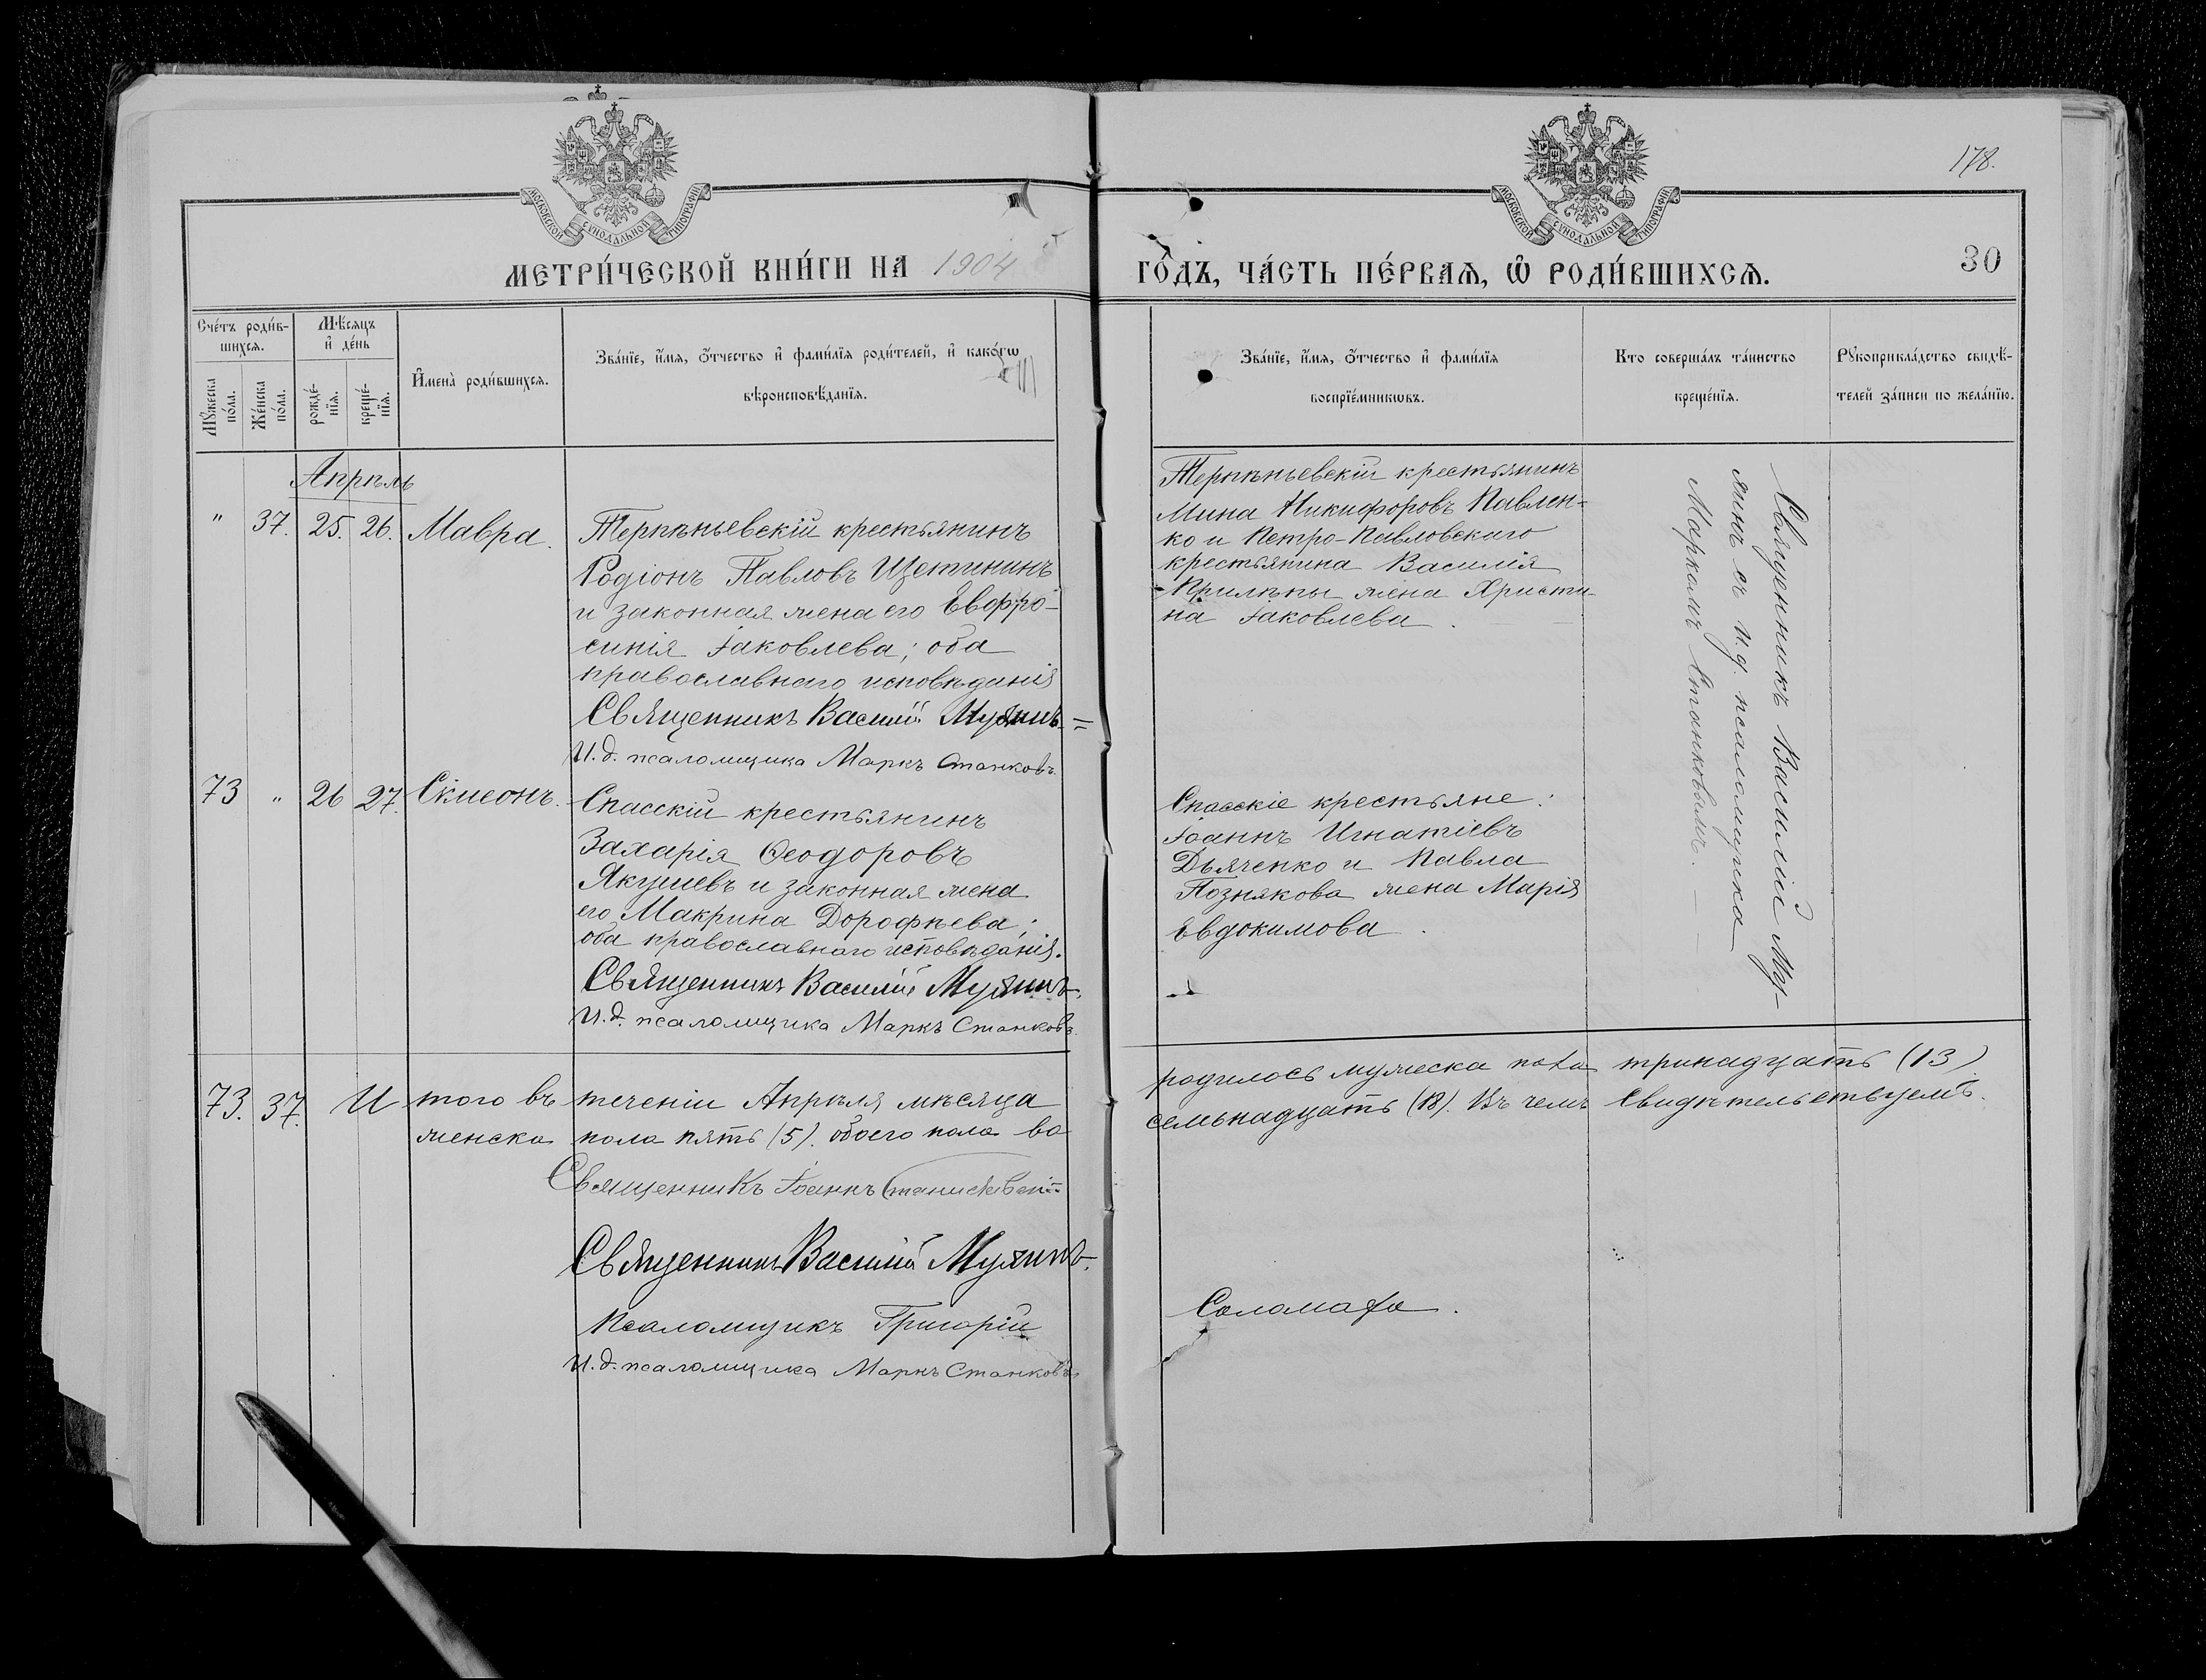 178.
МОСКОВСКОЙ СѴНОДАЛЬНОЙ ТИПОГРАФІИ
МОСКОВСКОЙ СѴНОДАЛЬНОЙ ТИПОГРАФІИ
МЕТРИ́ЧЕСКОЙ КНИ́ГИ НА 1904
ГО́ДЪ, ЧА́СТЬ ПЕ́РВАѦ, Ѽ РОДИ́ВШИХСѦ.
30
Сче́тъ роди́в-
шихсѧ.
Мꙋ́жеска
по́ла.
Же́нска
по́ла.
Мѣ́сѧцъ
и҆ де́нь
рожде́-
нїѧ.
креще́-
нїѧ.
И҆мена̀ роди́вшихсѧ.
Зва́нїе, и҆́мѧ, ѻ҆́тчество и҆ фами́лїѧ роди́телей, и҆ како́гѡ
вѣроисповѣ́данїѧ.
Зва́нїе, и҆́мѧ, ѻ҆́тчество и҆ фами́лїѧ
воспрїе́мникѡвъ.
Кто соверша́лъ та́инство
креще́нїѧ.
Рꙋкоприкла́дство свидѣ́-
телей за́писи по жела́нїю.
Апрѣль
" 37. 25. 26. Мавра.
Терпѣньевскій крестьянинъ
Родіонъ Павловъ Щетининъ
и законная жена его Евфро-
синія Іаковлева; оба
православнаго исповѣданія
Священникъ Василій
И.д. псаломщика Маркъ Станковъ.
Терпѣньевскій крестьянинъ
Мина Никифоровъ Павлен-
ко и Петро-Павловскаго
крестьянина Василія
Прилѣпы жена Христи-
на Іаковлева.
Священникъ Василій Му-
жинъ съ и.д. псаломщика
Маркомъ Станковымъ.
73 " 26 27. Сѵмеонъ.
Спасскій крестьянинъ
Захарія Ѳеодоровъ
Якушевъ и законная жена
его Макрина Дорофѣева;
оба православнаго исповѣданія.
Священникъ Василій
И.д. псаломщика Маркъ Станковъ.
Спасскіе крестьяне:
Іоаннъ Игнатіевъ
Дьяченко и Павла
Познякова жена Марія
Евдокимова.
73. 37. Итого въ теченіи Апрѣля мѣсяца родилось мужеска пола тринадцать (13)
женска пола пять (5). обоего пола во семьнадцать (18). Въ чемъ свидѣтельствуемъ.
Священникъ Іоаннъ
Священникъ Василій
Псаломщикъ Григорій Соломаха.
И.д. псаломщика Маркъ Станковъ.